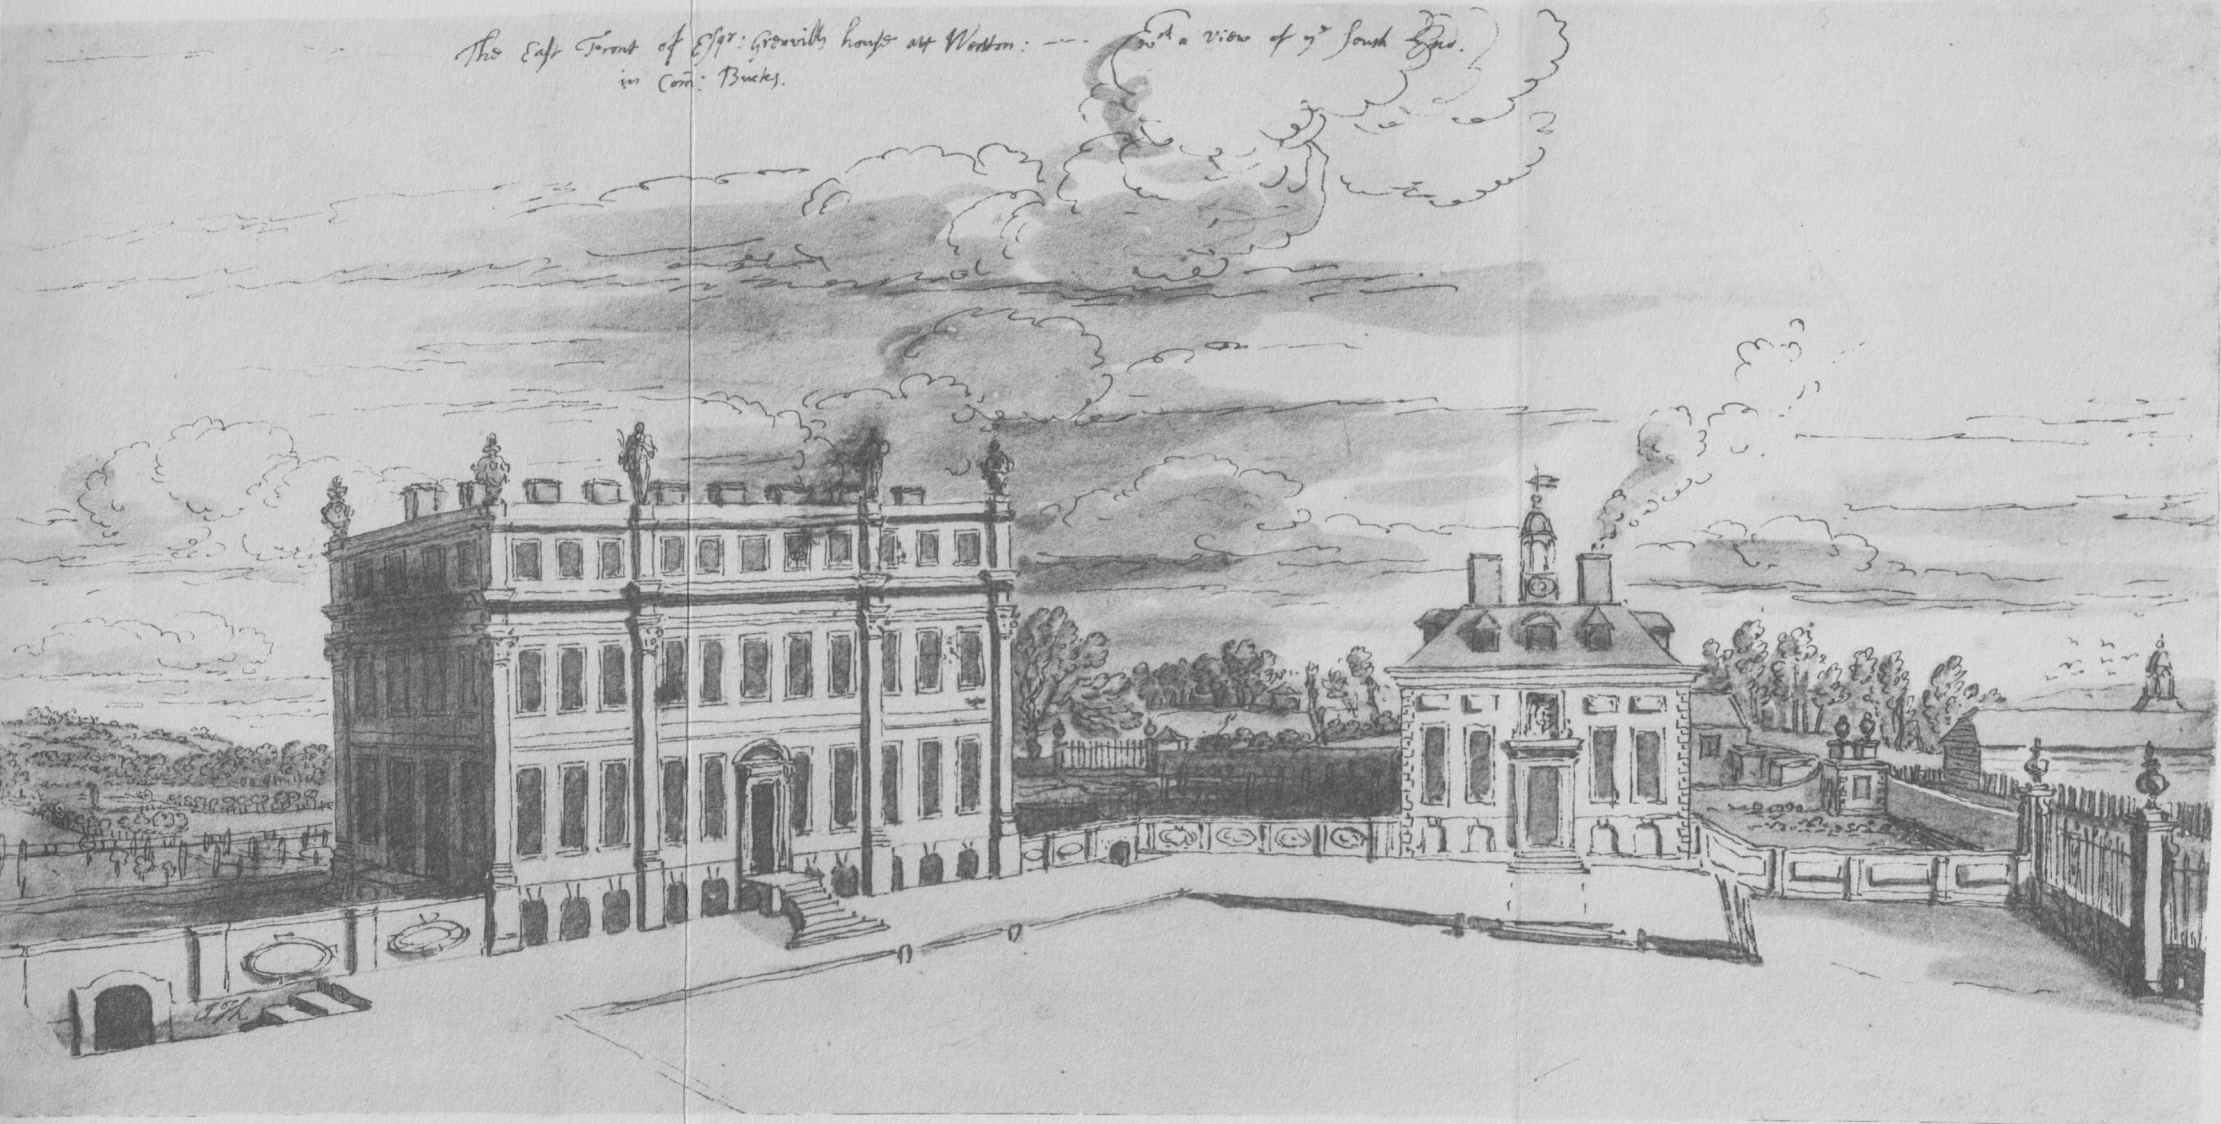 The East Front of Esqr: Grenvills house att Wotton: --- wth a view of ye South End.
in Com: Bucks.
J. Th